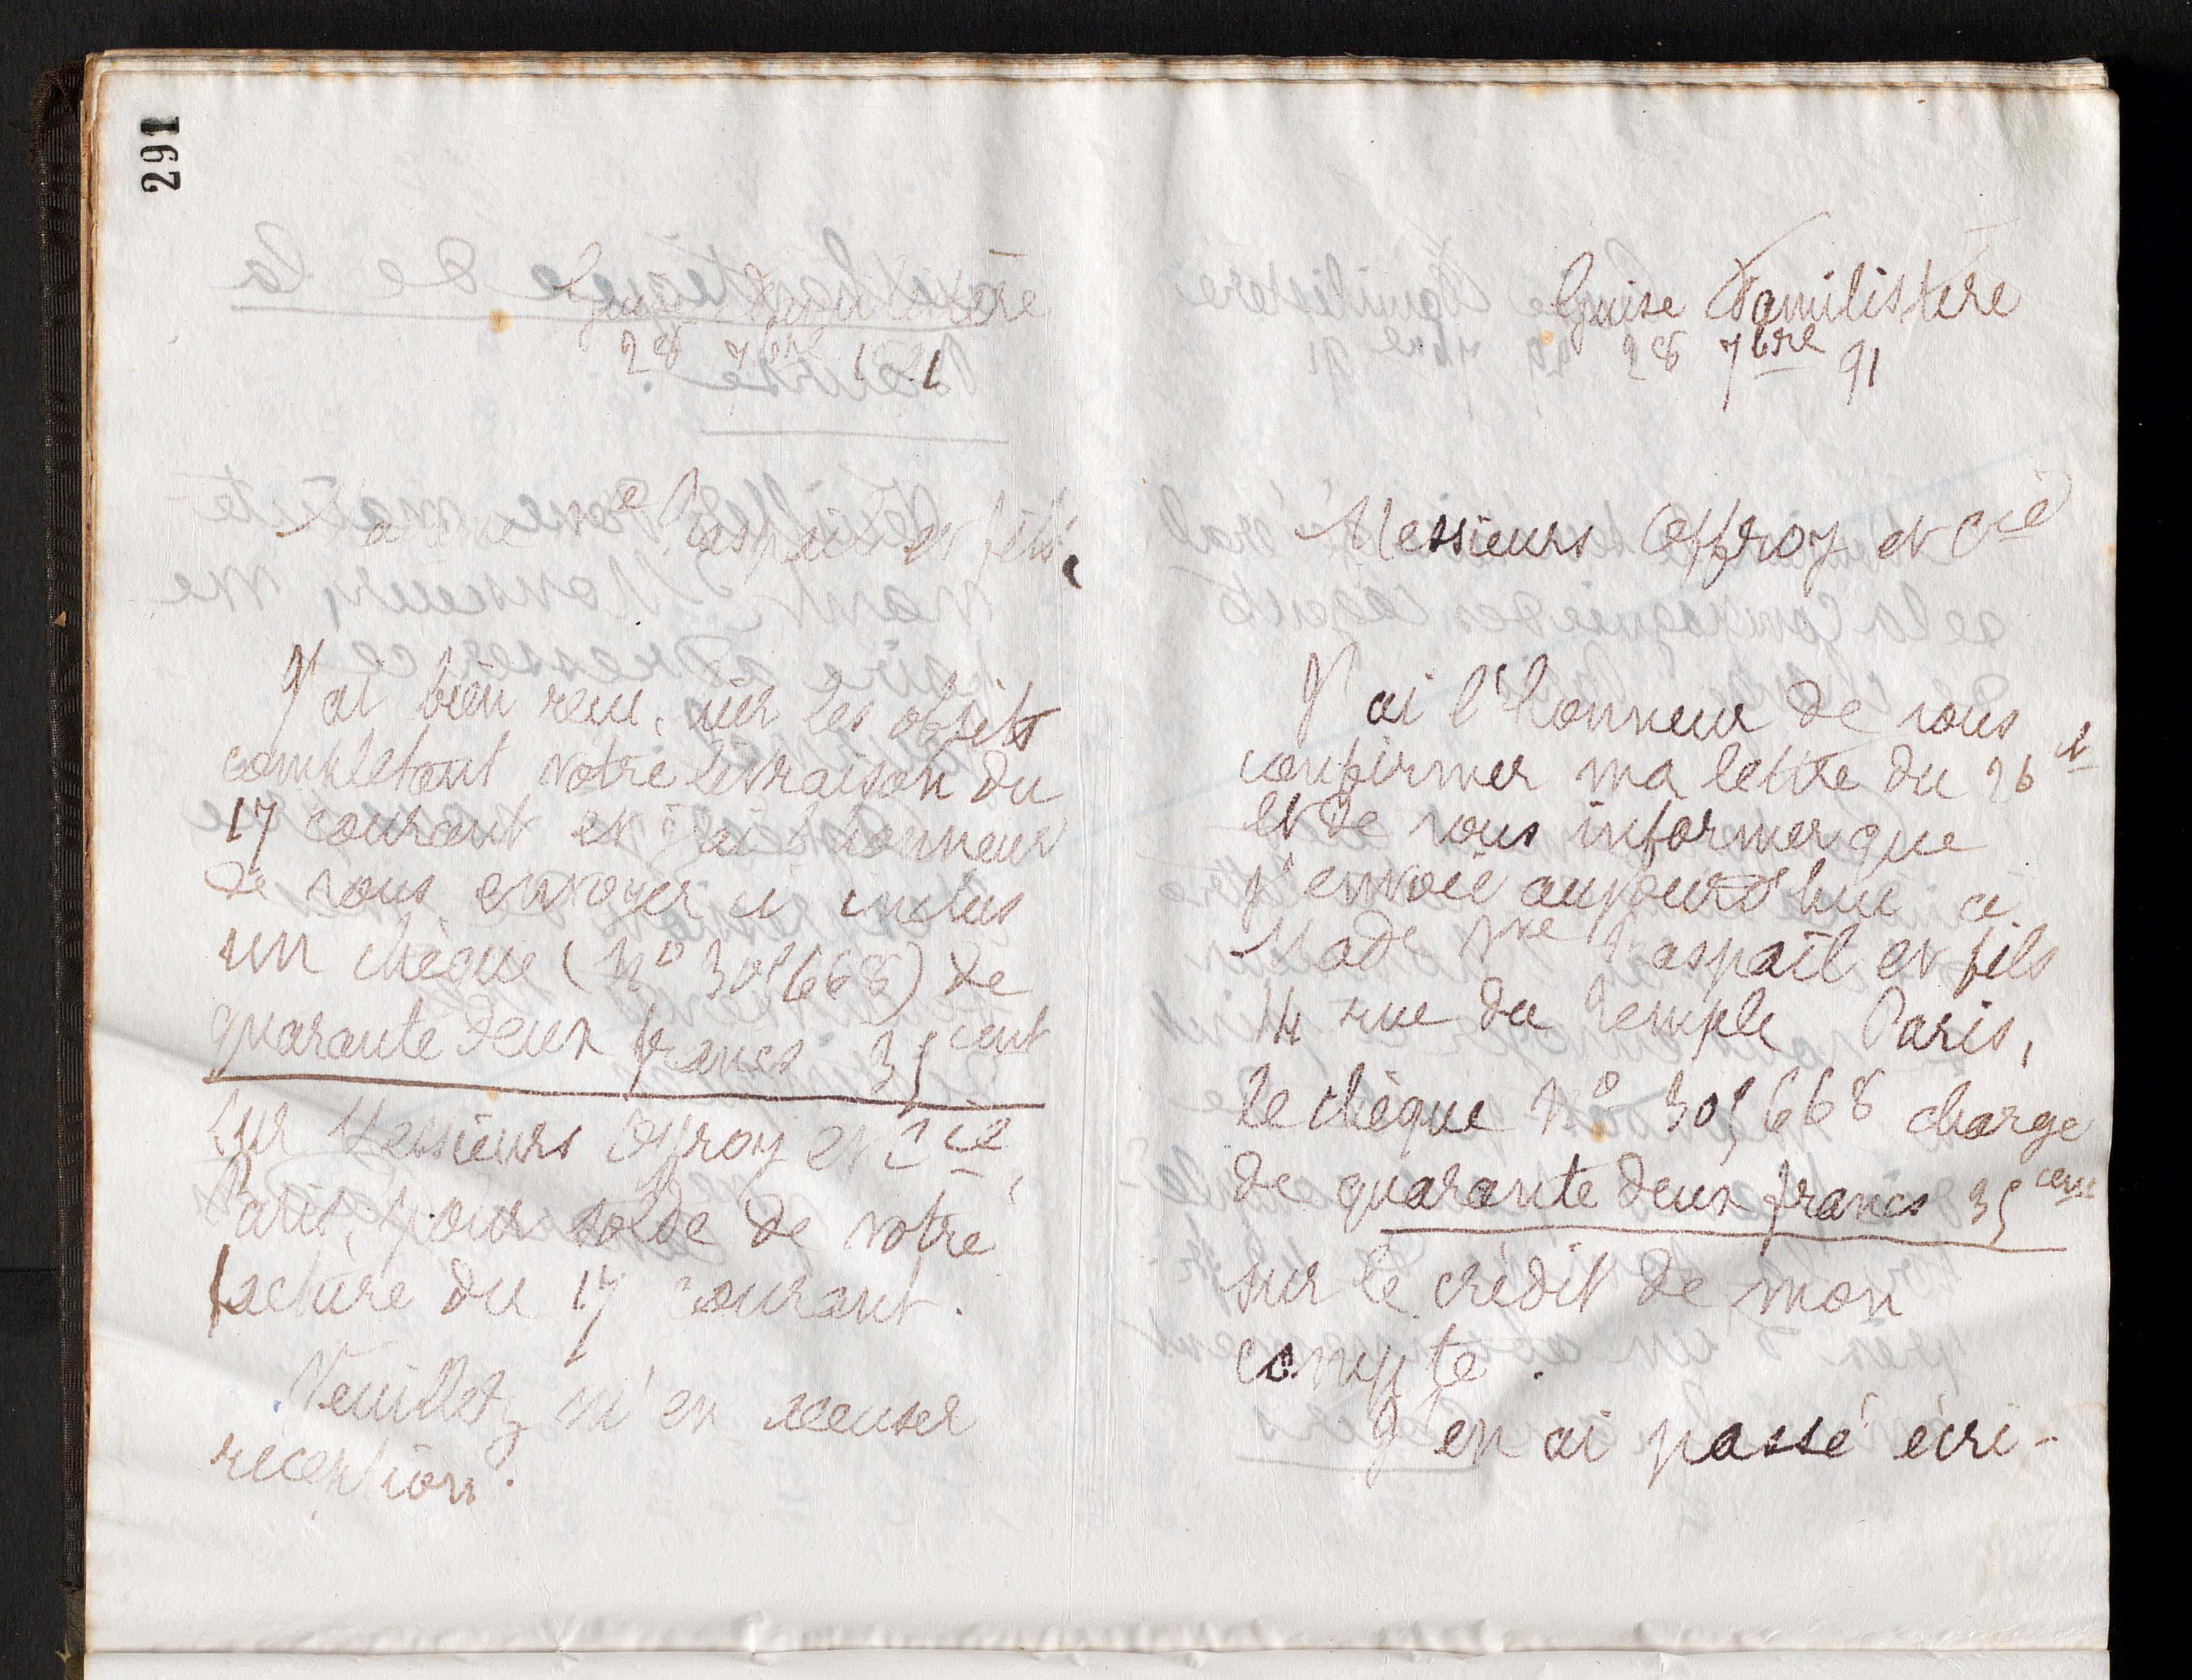 291
Guise Familistère
28 7bre 1891
Madame Vve Raspail et fils,
J'ai bien reçu, hier les objets
complétant votre livraison du
17 courant et j'ai l'honneur
de vous envoyer ci inclus
un chèque (No 305668) de
quarante deux francs 35 cent
sur Messieurs Offroy et Cie,
Paris, pour solde de votre
facture du 17 courant.
Veuillez m'en accuser
réception.
Guise Familistère
28 7bre 91
Messieurs Offroy et Cie
J'ai l'honneur de vous
confirmer ma lettre du 26 ct
et de vous informer que
j'envoie aujourd'hui à
Made Vve Raspail et fils
14 rue du Temple Paris,
le chèque No 305668 charge
de quarante deux francs 35 cent
sur le crédit de mon
compte.
J'en ai passé écri-